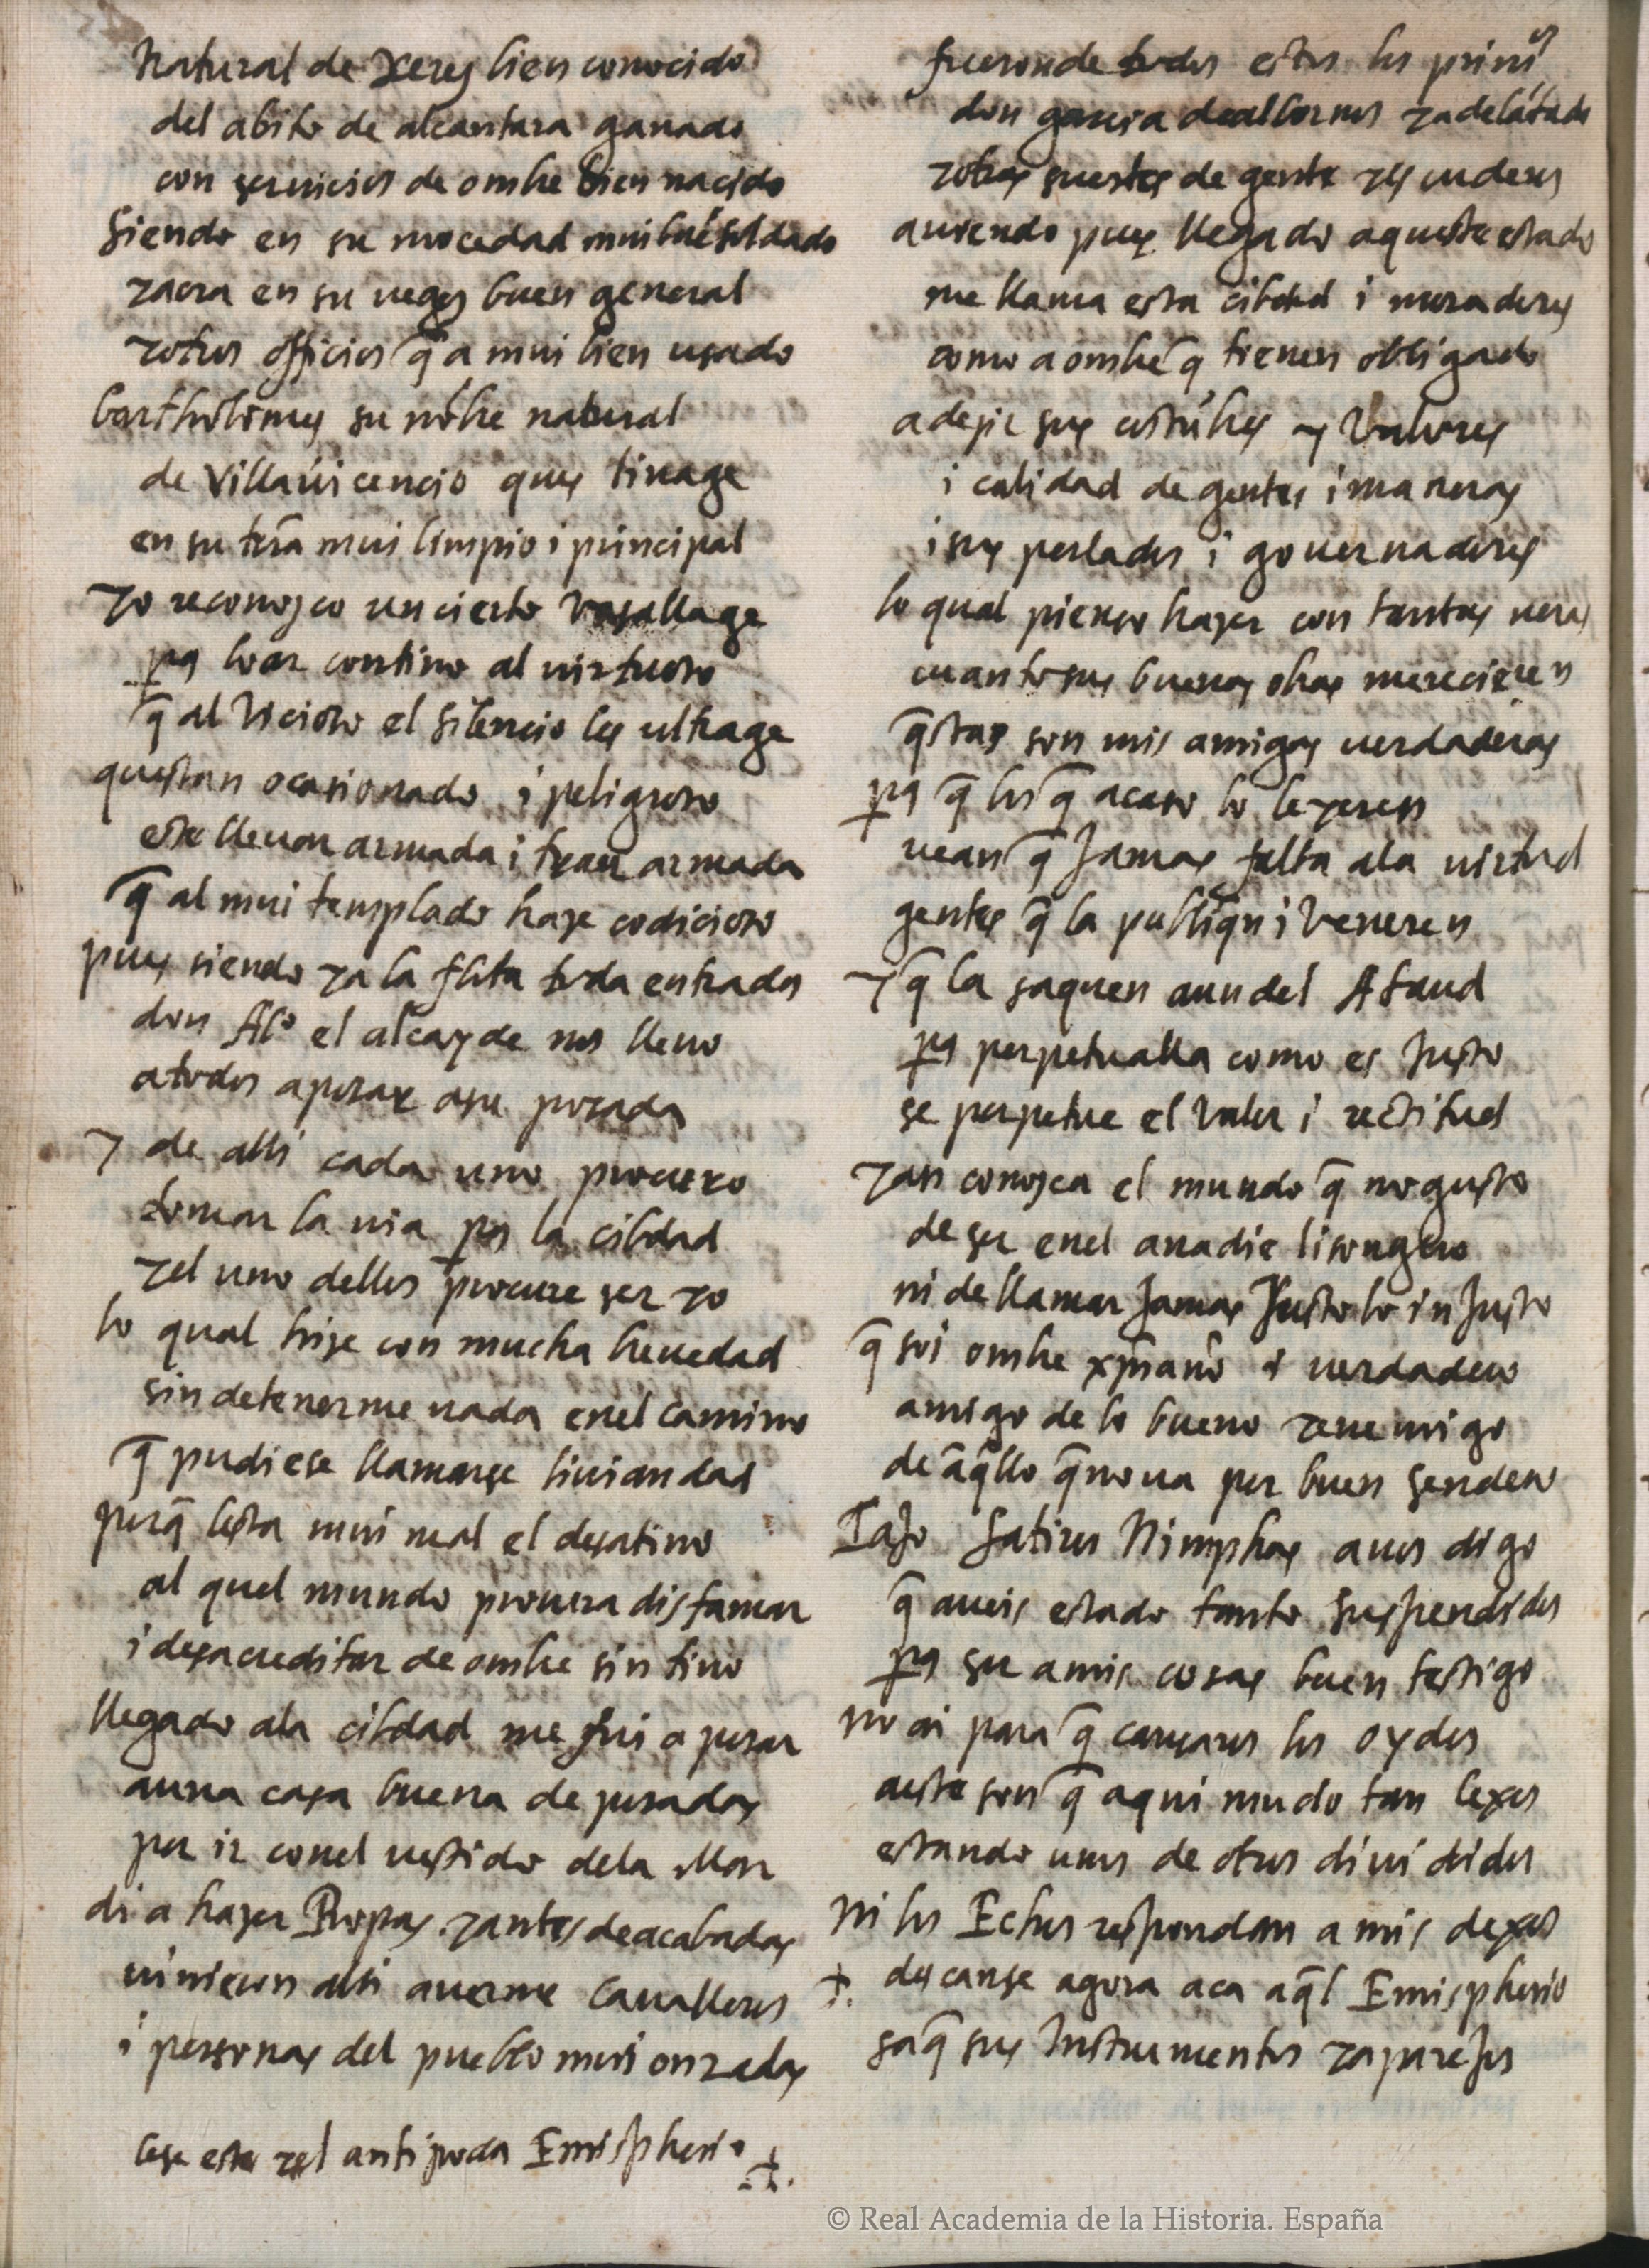 natural de Xerez bien conocido
del abito de alcantara ganado
con seruicios de ombre bien nacido
siendo en su mocedad mui bué soldado
y aora en su vegez buen general
y otros officios q̃ a mui bien usado
bartholomes su nõbre natural
de Villauicencio ques linage
en su trã mui limpio i principal
yo reconosco un cierto vasallage
pa loar contino al virtuoso
q̃ al vicioso el silencio les ultrage
questan ocasionado i peligroso
este lleuar armada i traer armada
q̃ al mui templado haze codicioso
pues siendo ya la flota toda entrada
don Alº el alcayde nos lleuo
a todos a posar a su posada
y de alli cada uno procuro
tomar la uia pa la cibdad
y el uno dellos procure ser yo
lo qual hize con mucha breuedad
sin detenerme nada enel camino
q̃ pudiese llamarse liuiandad
porq̃ lesta mui mal el desatino
al quel mundo procura disfamar
i desacreditar de ombre sin tino
llegado ala cibdad me fui a posar
a una casa buena de posadas
por ir conel vestido dela Mar
di a hazer Ropas y antes de acabadas
uinieron alli a uerme Caualleros
i personas del pueblo mui onradas
cese este y el antipoda Emispherio +
fueron de todos estos los primºs
don garcia de albornos y adelãtado
y otras suertes de gente y escuderos
auiendo pues llegado aqueste estado
me llama esta cibdad i moradores
como a ombre q̃ tienen obligado
a dezir sus costũbres y Valores
i calidad de gentes i maneras
i sus perlados i gouernadores
lo qual pienso hazer con tantas ueras
cuanto sus buenas obras merecieren
q̃stas son mis amigas uerdaderas
pa q̃ los q̃ acaso lo leyeren
uean q̃ Jamas falta ala uirtud
gentes q̃ la publiq̃n i Veneren
y q̃ la saquen aun del Ataud
pa perpetualla como es Justo
se perpetue el valor i rectitud
y an conosca el mundo q̃ no gusto
de ser enel a nadie lisongero
ni de llamar Jamas Justo lo inJusto
q̃ soi ombre xpiano i uerdadero
amigo de lo bueno y enemigo
de aq̃llo q̃ no ua por buen sendero
Satiros Nimphas a uos digo
q̃ aueis estado tanto suspendidos
pa ser a mis cosas buen testigo
no ai para q̃ cansaros los oydos
a este son q̃ aqui mudo tan lexos
estando unos de otros diuididos
ni los Echos respondan a mis dexos
+ descanse agora aca aq̃l Emispherio
saq̃ sus Instrumentos y apareJos
© Real Academia de la Historia. España